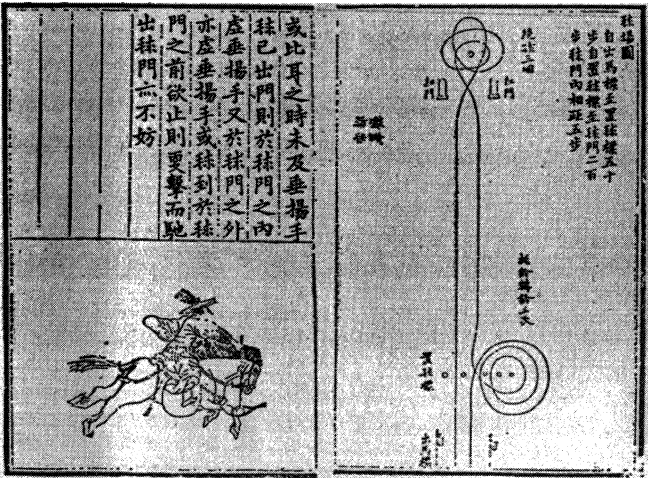 毬場圖
自出馬標至置毬標五十
步自置毬標至毬門二百
步毬門內相距五步
毬門
毬門
置毬標
出馬標
或比耳之時未及垂揚手
毬已出門則於毬門之內
虛垂揚手又於毬門之外
亦虛垂揚手或毬到於毬
門之前欲止則更擊而馳
出毬門亦不妨